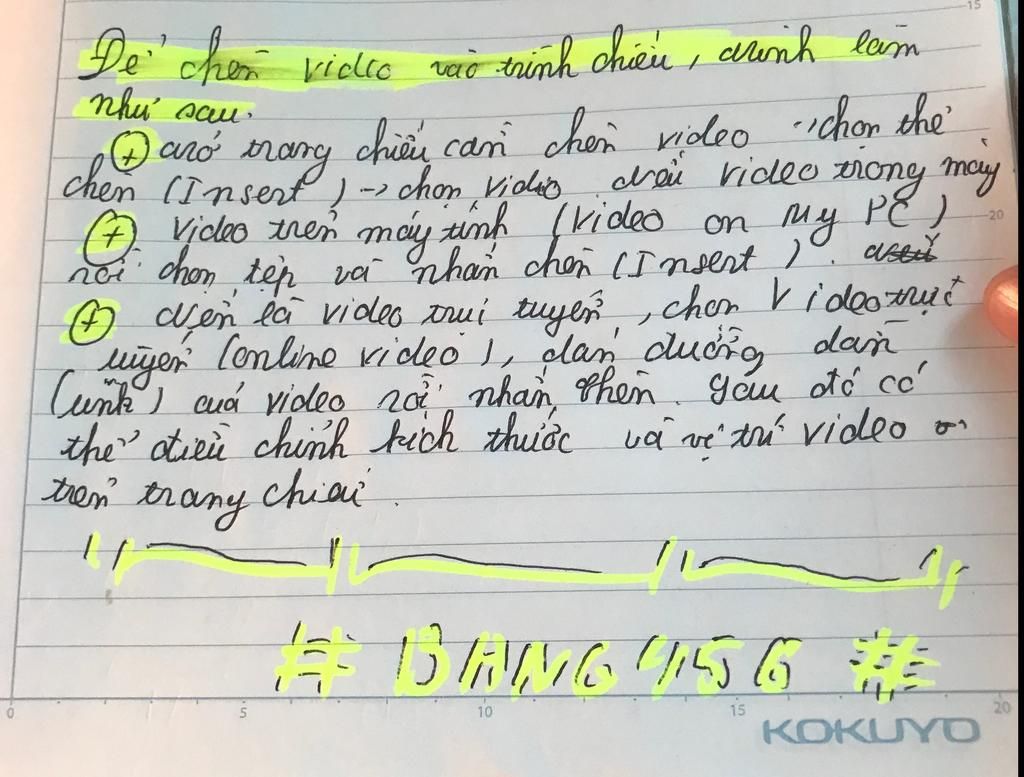 Để chèn video vào trình chiếu, mình làm
như sau.
+ mở trang chiếu cần chèn video -> chọn thẻ
chèn (Insert) -> chọn video nếu video trong máy
+ video trên máy tính (video on My PC)
rồi chọn tệp và nhấn chèn (Insert).
+ là video trực tuyến, chọn Video trực
tuyến (online video), dán đường dẫn
(link) của video rồi nhấn chèn. Sau đó có
thể điều chỉnh kích thước và vị trí video
trên trang chiếu.
# BANG 456 #
0 5 10 15 20
KOKUYO